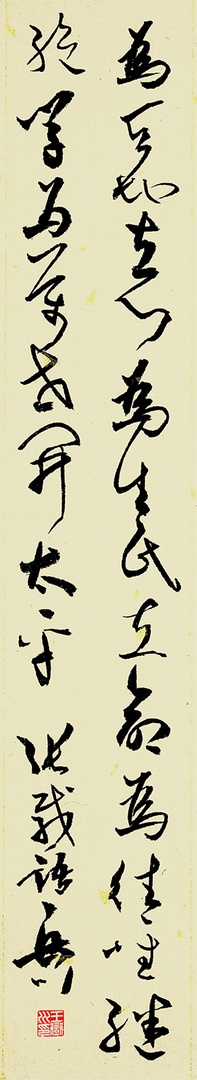 為天地立心為生民立命為往聖繼
絕學為萬世開太平 張載語